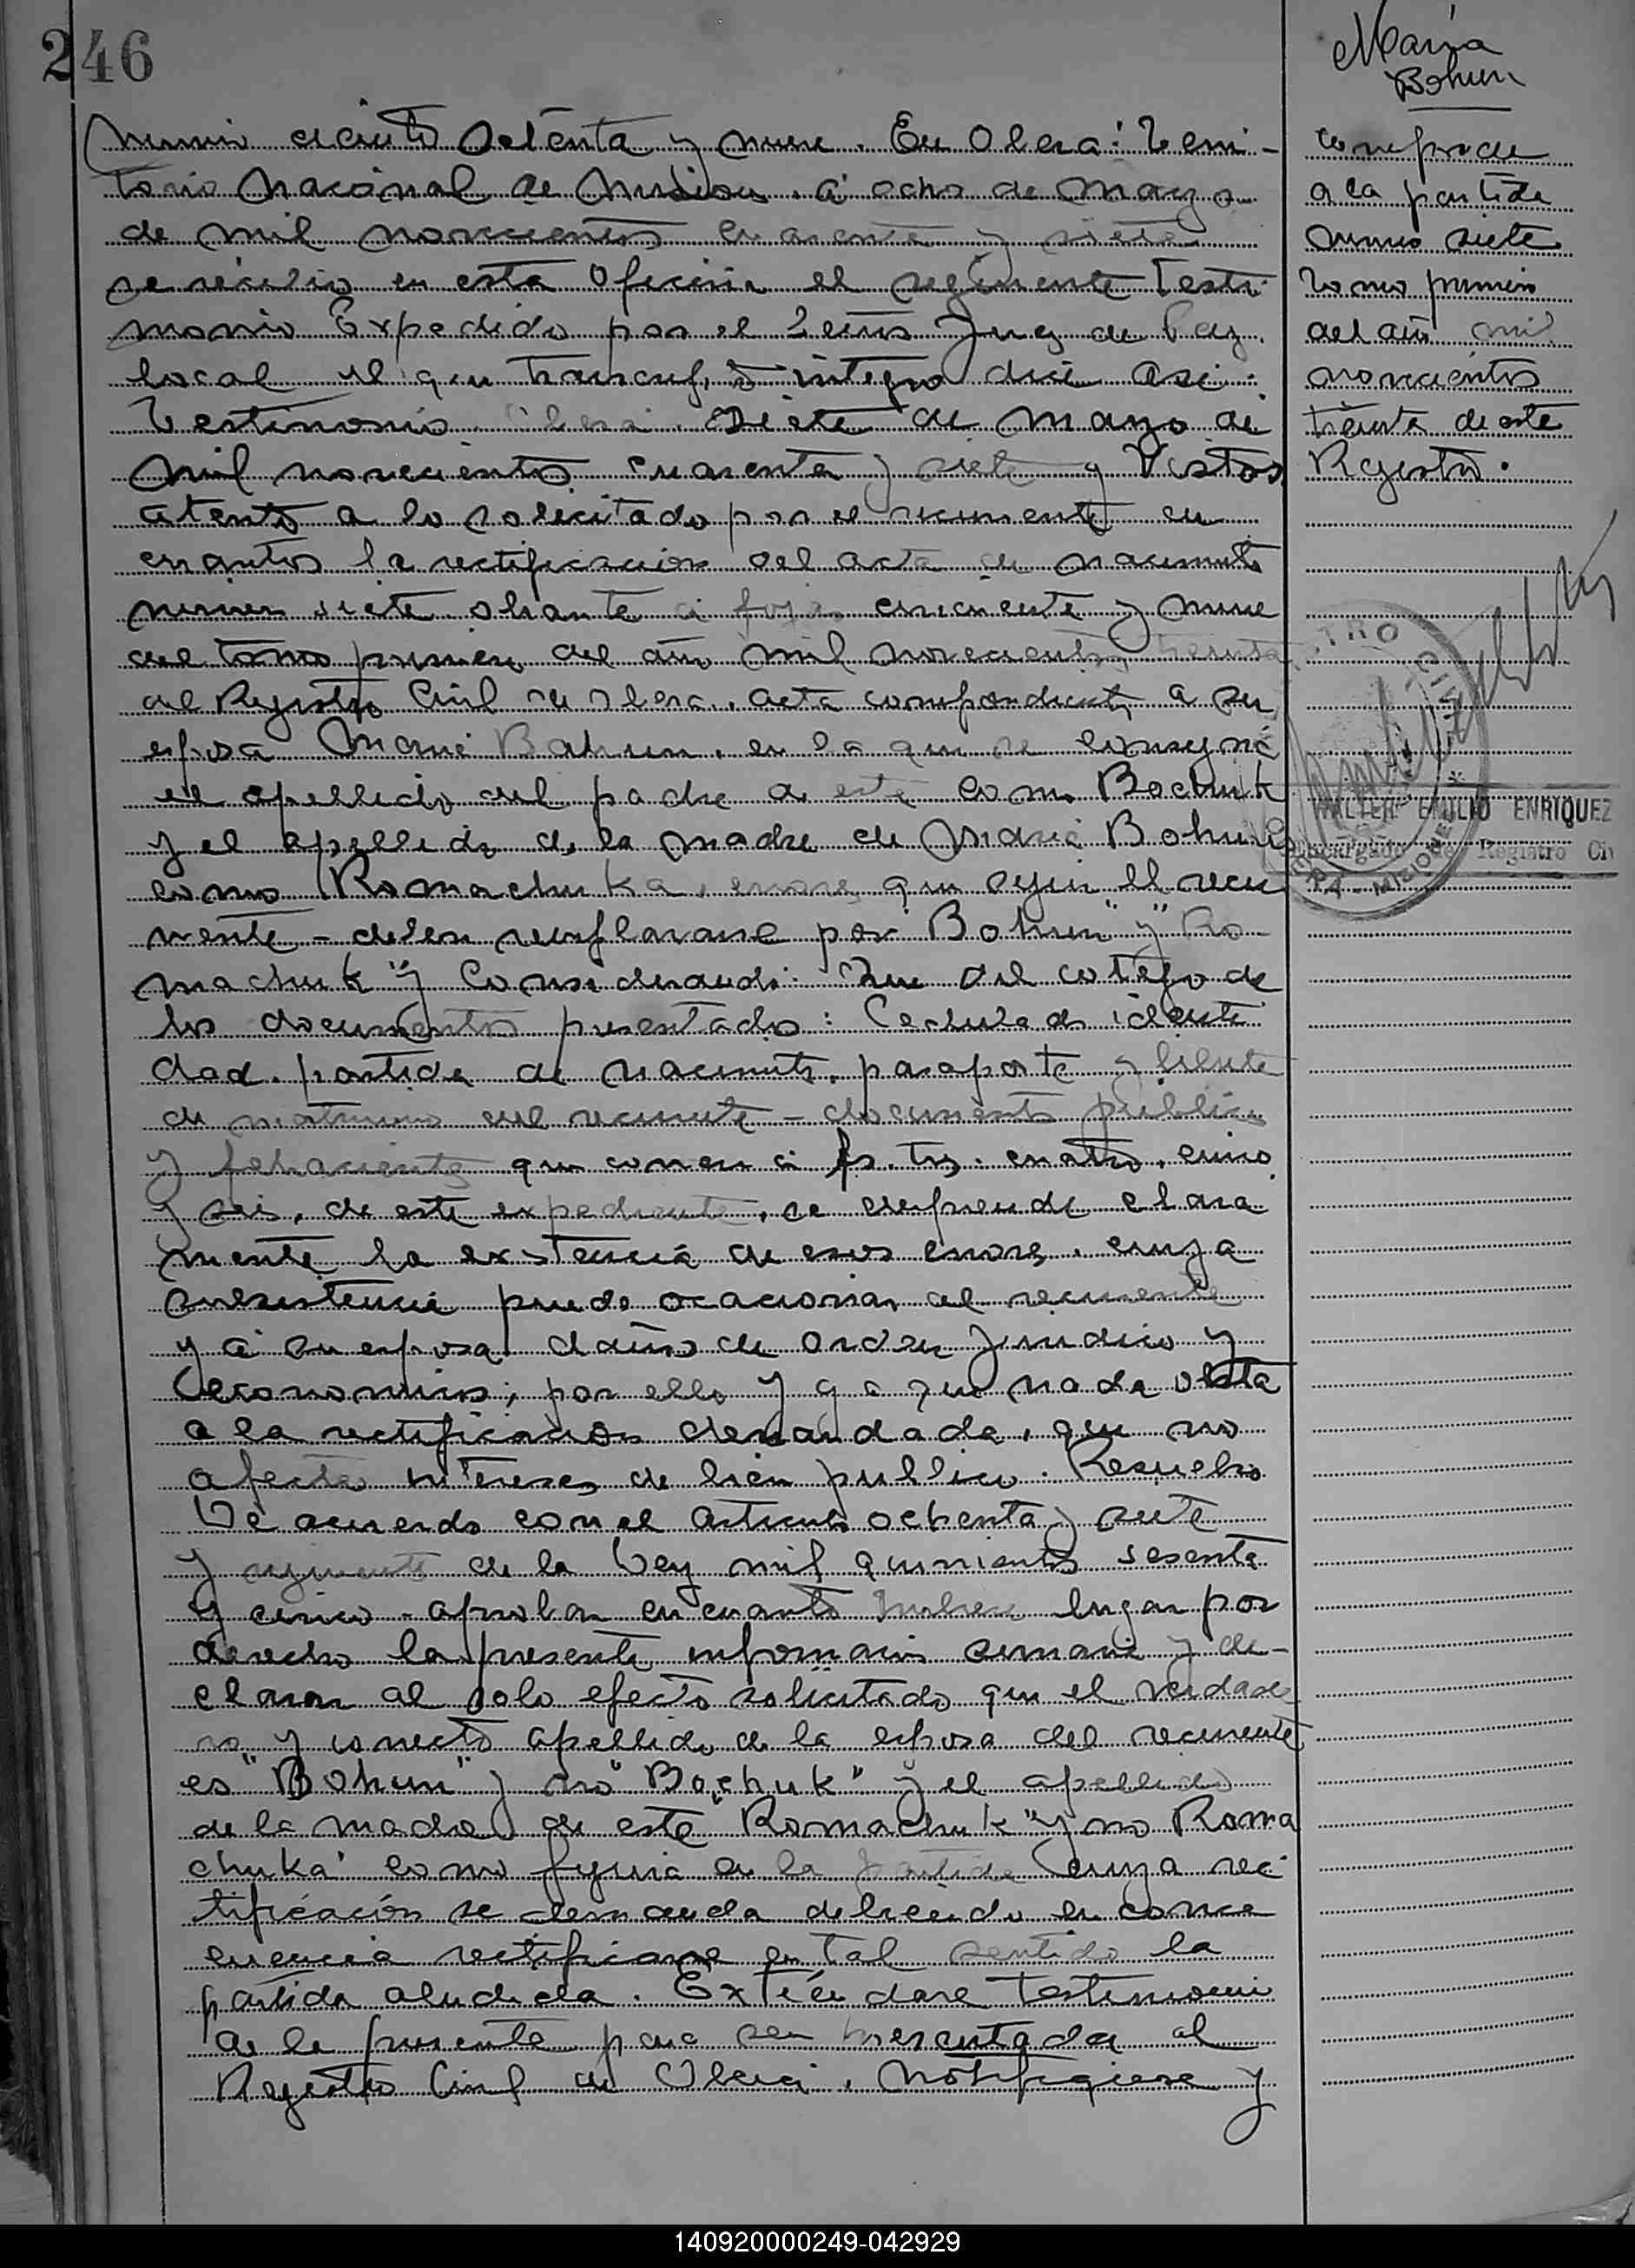 246
María
Bohun
Número ciento setenta y nueve. En Oberá: Terri-
torio Nacional de Misiones, a ocho de Mayo
de mil novecientos cuarenta y siete
se recibio en esta Oficina el siguiente Testi-
monio Expedido por el Señor Juez de Paz
local el que transcripto integro dice asi:
Testimonio. Oberá. Siete de Mayo de
mil novecientos cuarenta y siete y Vistos
atento a lo solicitado por el recurrente en
cuanto la rectificación del acta de nacimiento
numero siete obrante a fojas cincuenta y nueve
del tomo primero del año mil novecientos treinta
del Registro Civil de Obera. acta correspondiente a su
esposa María Bohun, en la que se consignó
el apellido del padre de esta como Bochuk
y el apellido de la madre de María Bohun
como Romachuka, errores que segun el recu
rrente - deben reemplazarse por "Bohun" y "Ro-
machuk" y Considerando: Que del cotejo de
los documentos presentados: Cedula de identi
dad, partida de nacimiento, pasaporte y libreta
de matrimonio del recurrente - documentos publicos
y fehacientes que corren a fs. tres, cuatro, cinco
y seis, de este expediente, se desprende clara
mente la existencia de esos errores, cuya
subsistencia puede ocacionar al recurrente
y a su esposa daños de orden juridico y
economicos; por ello y ya que nada obsta
a la rectificación demandada, que no
afecta intereses de bien publico. Resuelvo
De acuerdo con el articulo ochenta y siete
y siguiente de la Ley mil quinientos sesenta
y cinco - aprobar en cuanto hubiere lugar por
derecho la presente informacion sumaria y de-
clarar al solo efecto solicitado que el verdade
ro y correcto apellido de la esposa del recurrente
es "Bohun" y no "Bochuk" y el apellido
de la madre de esta "Romachuk" y no Roma
chuka" como figura en la partida cuya rec
tificación se demanda debiendo en conse
cuencia rectificarse en tal sentido la
partida aludida. Extiéndase testimonio
de la presente para ser presentada al
Registro Civil de Oberá, Notifiquese y
corresponde
a la partida
numero siete
Tomo primero
del año mil
novecientos
treinta de este
Registro.
WALTER EMILIO ENRIQUEZ
Encargado de Registro Civ
140920000249-042929